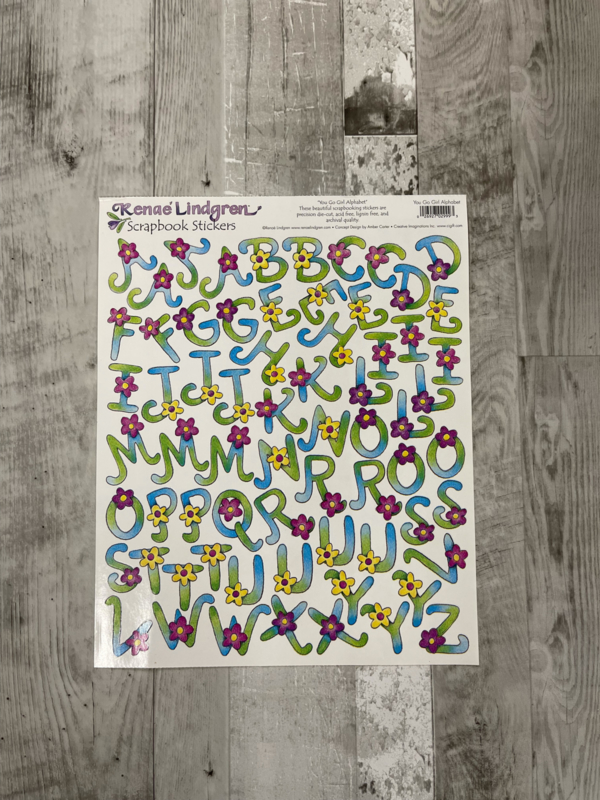 Renae' Lindgren
Scrapbook Stickers
"You Go Girl Alphabet"
These beautiful scrapbooking stickers are
precision die-cut, acid free, lignin free, and
archival quality.
You Go Girl Alphabet
©Renae' Lindgren www.renaelindgren.com • Concept Design by Amber Carter • Creative Imaginations Inc. www.cigift.com
A A A A B B C C D D
F F G G E E E E
I J J J H H I I I
K K K L L
M M M N N O O O
O P P Q R R R S S
S T T T U U U U N
V W W X X Y Y Y Z